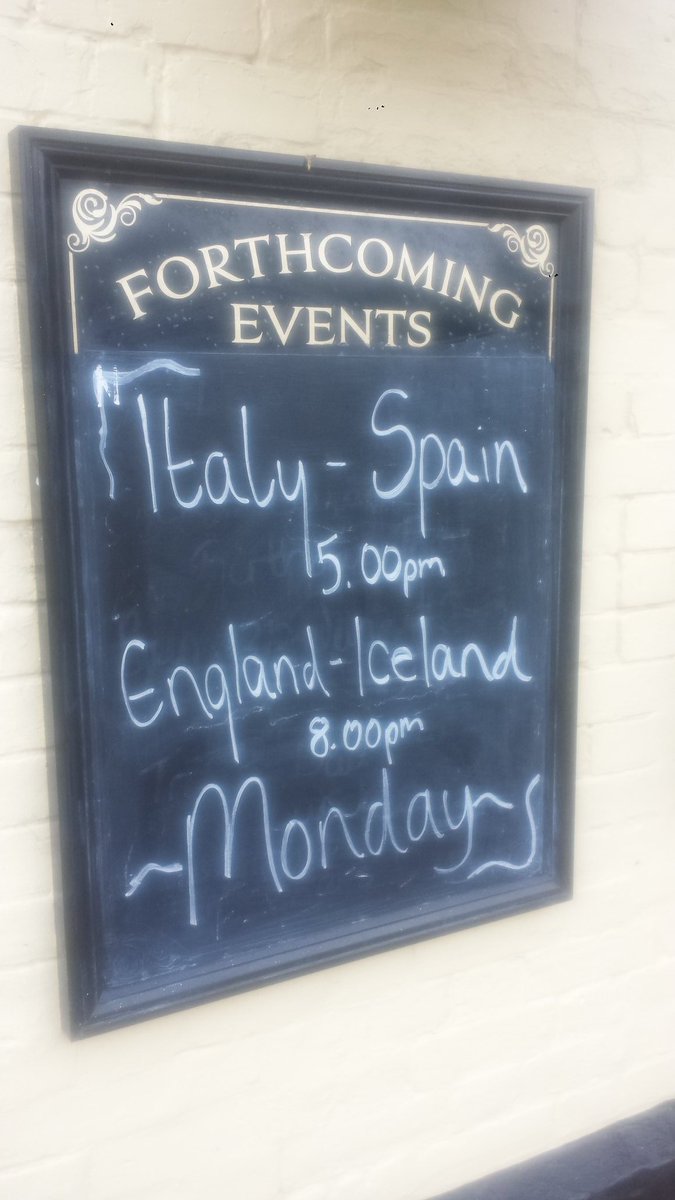 FORTHCOMING
EVENTS
Italy - Spain
5.00pm
England - Iceland
8.00pm
~ Monday ~